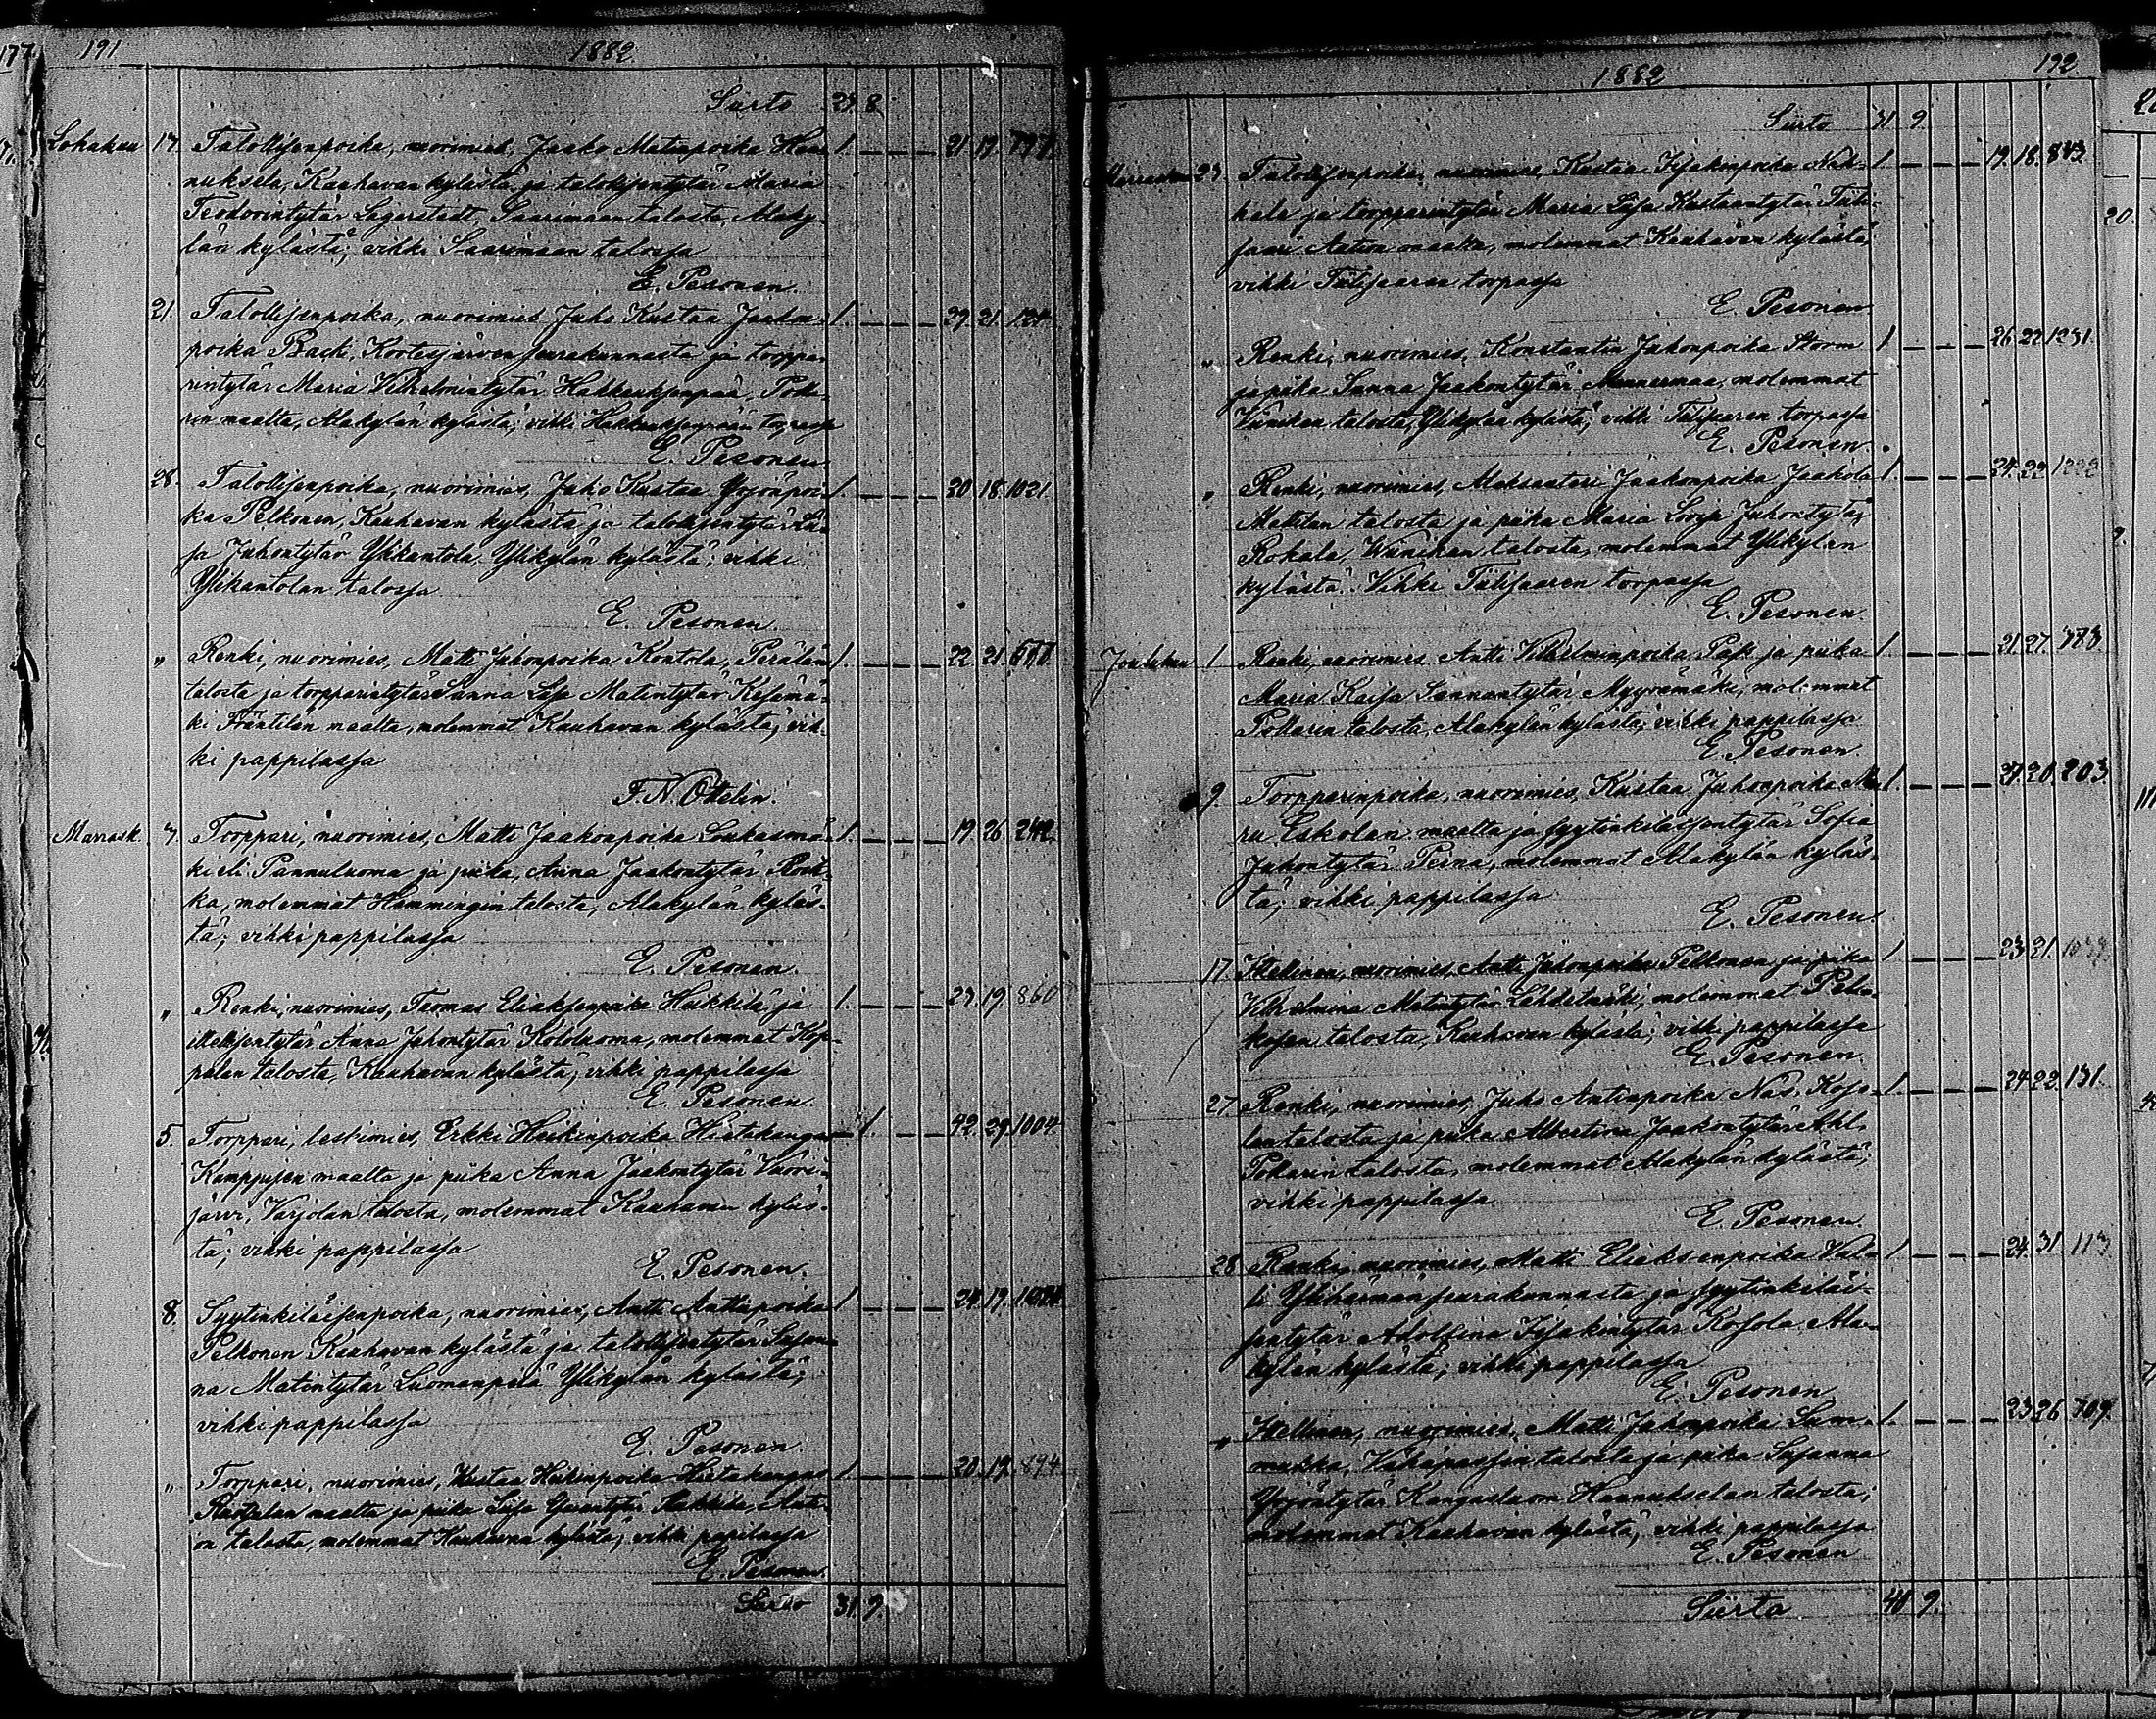 191
1882
Siirto 23. 8
Lokakuu 17. Talollisenpoika, nuorimies, Jaako Matinpoika Haa- 1. — — — 21. 19. 797.
nuksela, Kauhavan kylästä ja talollisentytär Maria
Teodorintytär Lagerstedt, Saarimaan talosta, Alaky-
län kylästä; vihki Saarimaan talossa
E. Pesonen.
21. Talollisenpoika, nuorimies Juho Kustaa Jaakon- 1. — — — 29. 21. 124.
poika Back, Kortesjärven seurakunnasta ja torppa-
rintytär Maria Vilhelmintytär Hakkuksenpää, Potta-
rin maalta, Alakylän kylästä; vihki Hakkuksenpään torpassa
E. Pesonen
28. Talollisenpoika, nuorimies, Juho Kustaa Yrjönpoi- 1. — — — 20. 18. 1021.
ka Pelkonen, Kauhavan kylästä ja talollisentytär Lii-
sa Juhontytär Ylikantola, Ylikylän kylästä; vihki
Ylikantolan talossa
E. Pesonen.
„ Renki, nuorimies, Matti Juhonpoika Kontola, Perälän 1. — — — 22. 21.
talosta ja torpparintytär Sanna Liisa Matintytär Kesämä-
ki Fräntilän maalta, molemmat Kauhavan kylästä; vih-
ki pappilassa
F. N. Ottelin.
Marrask. 7. Torppari, nuorimies, Matti Jaakonpoika Loukasmä- 1. — — — 19. 26. 242.
ki eli Pannuluoma ja piika, Anna Jaakontytär Rosk-
ka, molemmat Hemmingin talosta, Alakylän kyläs-
tä; vihki pappilassa
E. Pesonen.
„ Renki, nuorimies, Tuomas Eliaksenpoika Heikkilä ja 1. — — — 23. 19. 860
itellisentytär Anna Juhontytär Kololuoma, molemmat Kop-
palan talosta, Kauhavan kylästä; vihki pappilassa
E. Pesonen.
5. Torppari, leskimies, Erkki Heikinpoika Hietakangas — 1. — — 42. 29. 1004
Kamppisen maalta ja piika Anna Jaakontytär Vuori-
järvi, Varjolan talosta, molemmat Kauhavan kyläs-
tä; vihki pappilassa
E. Pesonen.
8. Syytinkiläisenpoika, nuorimies, Antti Anttipoika 1. — — — 24. 19.
Pelkonen Kauhavan kylästä ja talollisentytär Susan-
na Matintytär Luomanperä Ylikylän kylästä;
vihki pappilassa
E. Pesonen.
„ Torppari, nuorimies, Kustaa Heikinpoika Hietakangas 1. — — — 20. 19. 894
Rantalan maalta ja piika Liisa Heikkilä, Anti-
on talosta, molemmat Kauhavan kylästä; vihki papilassa
E. Pesonen.
Siirto 31. 9.
192
1882
Siirto 31 9.
Marraskuu 23. Talollisenpoika, nuorimies, Kustaa Iisakinpoika Nah- 1. — — — 19. 18. 843.
kala ja torpparintytär Maria Liisa Kustaantytär Tiili-
saari Antion maalta, molemmat Kauhavan kylästä,
vihki Tiilisaaren torpassa
E. Pesonen
„ Renki, nuorimies, Konstantin Juhonpoika Storm 1 — — — 26. 22. 1231.
ja piika Sanna Jaakontytär Munnermaa, molemmat
Wiinikan talosta, Ylikylän kylästä; vihki Tiilisaaren torpassa
E. Pesonen.
„ Renki, nuorimies, Aleksanteri Jaakonpoika Jaakola 1. — — — 24. 22
Mattilan talosta ja piika Maria Lovisa Juhontytär
Rokala, Wiinikan talosta, molemmat Ylikylän
kylästä. Vihki Tiilisaaren torpassa
E. Pesonen.
Joulukuu 1 Renki, nuorimies Antti Vilhelminpoika Pass ja piika 1. — — — 21. 27. 373.
Maria Kaisa Sannantytär Myyrämäki, molemmat
Pottarin talosta, Alakylän kylästä; vihki pappilassa
E. Pesonen
9. Torpparinpoika, nuorimies, Kustaa Juhonpoika 1. — — — 27. 20. 203.
Eskolan maalta ja syytinkiläisentytär Sofia
Juhontytär Perna, molemmat Alakylän kyläs-
tä; vihki pappilassa
E. Pesonen.
17. Itellinen, nuorimies, Antti Juhonpoika Pelkonen ja piika 1 — — — 23. 21.
Vilhelmina Matintytär Lähdetniäki, molemmat Pelu-
kosen talosta, Kauhavan kylästä; vihki pappilassa
E. Pesonen.
27 Renki, nuorimies, Juho Antinpoika Näs, Koso- 1. — — — 24. 22. 131.
lan talosta ja piika Albertina Jaakontytär Ahl,
Pottarin talosta, molemmat Alakylän kylästä;
vihki pappilassa
E. Pesonen.
28 Renki, nuorimies, Matti Eliaksenpoika Vala- 1. — — — 24. 31. 113
si Ylihärmän seurakunnasta ja syytinkiläi-
sentytär Adolfina Iisakintytär Kosola Ala-
kylän kylästä; vihki pappilassa
E. Pesonen
„ Itellinen, nuorimies, Matti Juhonpoika Lum- 1. — — — 23. 26. 709.
mukka, Vähäpassin talosta ja piika Susanna
Yrjöntytär Kangasluom Haanukselan talosta;
molemmat Kauhavan kylästä; vihki pappilassa
E. Pesonen
Siirto 40 9.